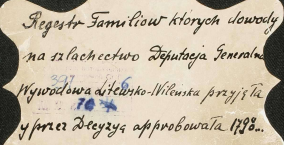 Regestr Familiow których dowody
na szlachectwo Deputacja Generalna
Wywodowa Litewsko-Wilenska przyjęła
y przez Decyzyą approbowała 1798...